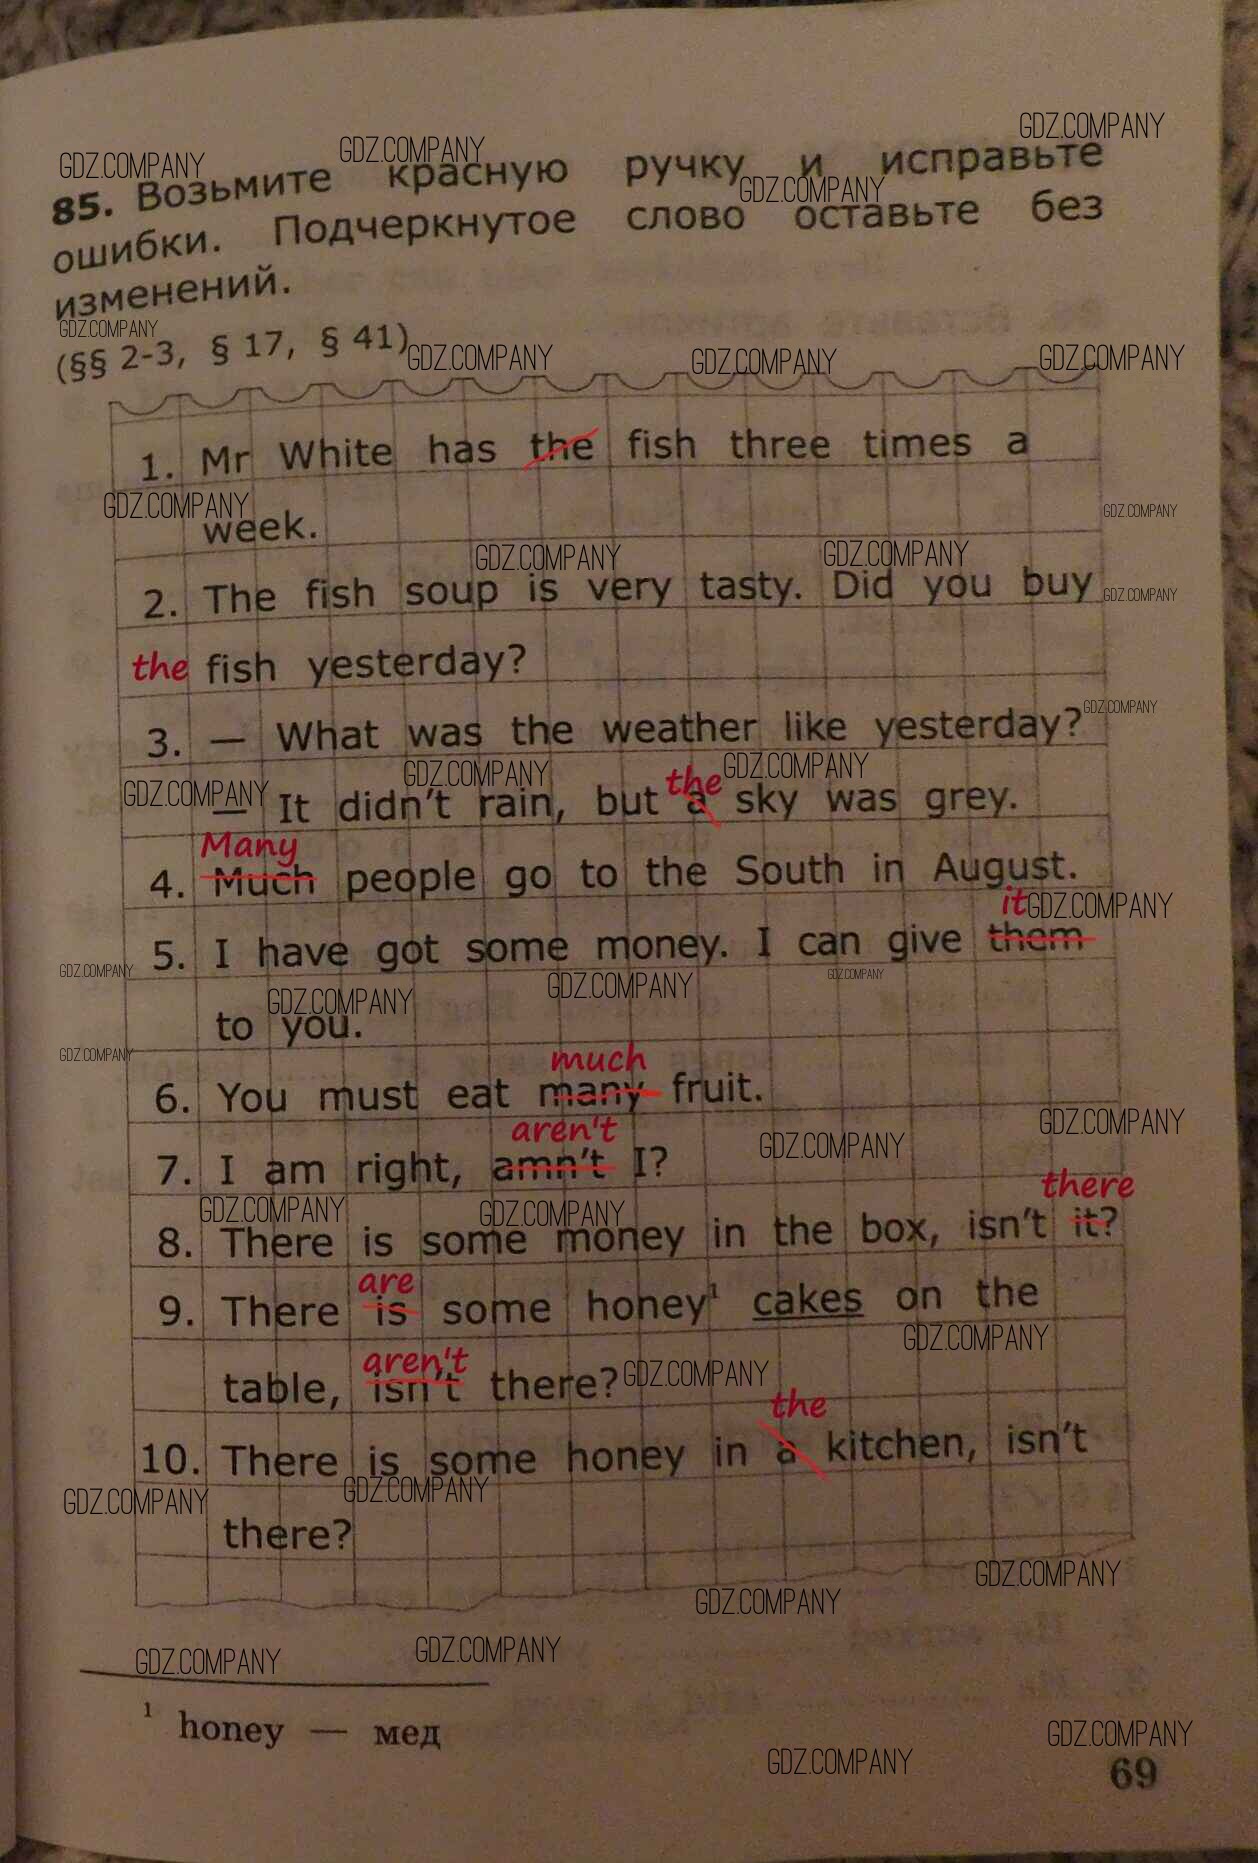 GDZ.COMPANY GDZ.COMPANY GDZ.COMPANY
85. Возьмите красную ручку и исправьте
GDZ.COMPANY
ошибки. Подчеркнутое слово оставьте без
изменений.
GDZ.COMPANY
(§§ 2-3, § 17, § 41)
GDZ.COMPANY GDZ.COMPANY GDZ.COMPANY
1. Mr White has the fish three times a
GDZ.COMPANY GDZ.COMPANY
week.
GDZ.COMPANY GDZ.COMPANY
2. The fish soup is very tasty. Did you buy
GDZ.COMPANY
the fish yesterday?
GDZ.COMPANY
3. — What was the weather like yesterday?
GDZ.COMPANY GDZ.COMPANY GDZ.COMPANY
the
— It didn't rain, but a sky was grey.
Many
4. Much people go to the South in August.
it GDZ.COMPANY
5. I have got some money. I can give them
GDZ.COMPANY GDZ.COMPANY GDZ.COMPANY GDZ.COMPANY
to you.
GDZ.COMPANY
much
6. You must eat many fruit.
aren't GDZ.COMPANY GDZ.COMPANY
7. I am right, amn't I?
there
GDZ.COMPANY GDZ.COMPANY
8. There is some money in the box, isn't it?
are
9. There is some honey¹ cakes on the
GDZ.COMPANY
aren't GDZ.COMPANY
table, isn't there?
the
10. There is some honey in a kitchen, isn't
GDZ.COMPANY GDZ.COMPANY
there?
GDZ.COMPANY GDZ.COMPANY
GDZ.COMPANY GDZ.COMPANY
¹ honey — мед
GDZ.COMPANY GDZ.COMPANY
69